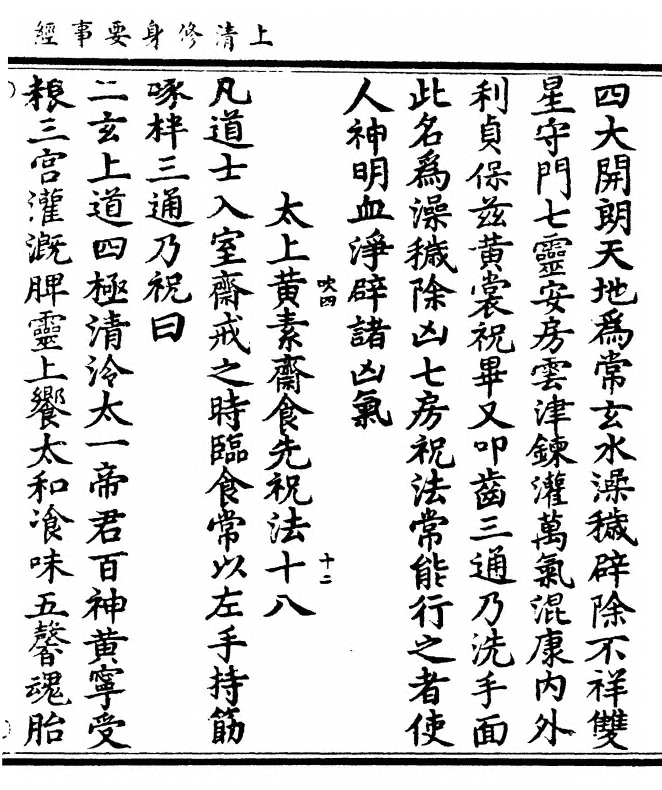 上清修身要事經
四大開朗天地爲常玄水澡穢辟除不祥雙
星守門七靈安房雲津鍊灌萬氣混康內外
利貞保兹黄裳祝畢又叩齒三通乃洗手面
此名爲澡穢除凶七房祝法常能行之者使
人神明血淨辟諸凶氣
太上黄素齋食先祝法十八
吠四
十二
凡道士入室齋戒之時臨食常以左手持筯
啄柈三通乃祝曰
二玄上道四極清泠太一帝君百神黄寧受
粮三宫灌溉脾靈上饗太和飡味五馨魂胎